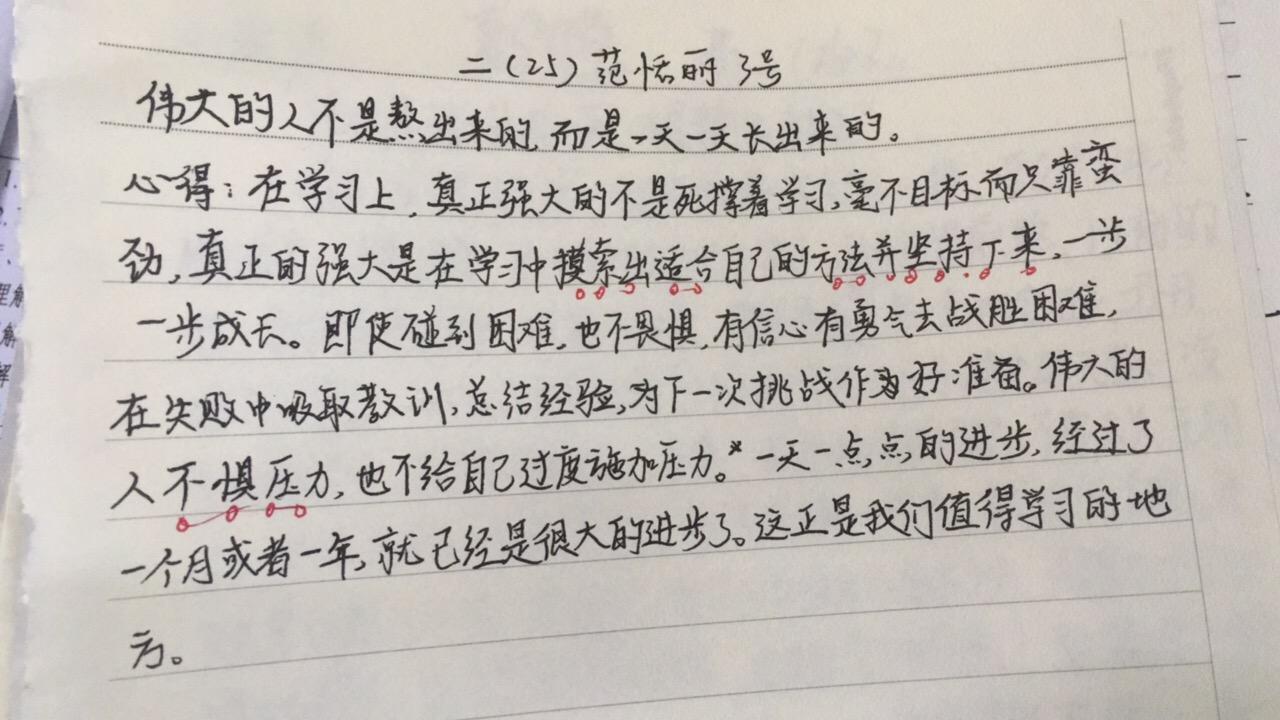 二(25)范恬丽 3号
伟大的人不是熬出来的,而是一天一天长出来的。
心得:在学习上,真正强大的不是死撑着学习,毫不目标而只靠蛮
劲,真正的强大是在学习中摸索出适合自己的方法并坚持下来,一步
一步成长。即使碰到困难,也不畏惧,有信心有勇气去战胜困难,
在失败中吸取教训,总结经验,为下一次挑战作为好准备。伟大的
人不惧压力,也不给自己过度施加压力。一天一点点的进步,经过了
一个月或者一年,就已经是很大的进步了。这正是我们值得学习的地
方。
理解
解
解